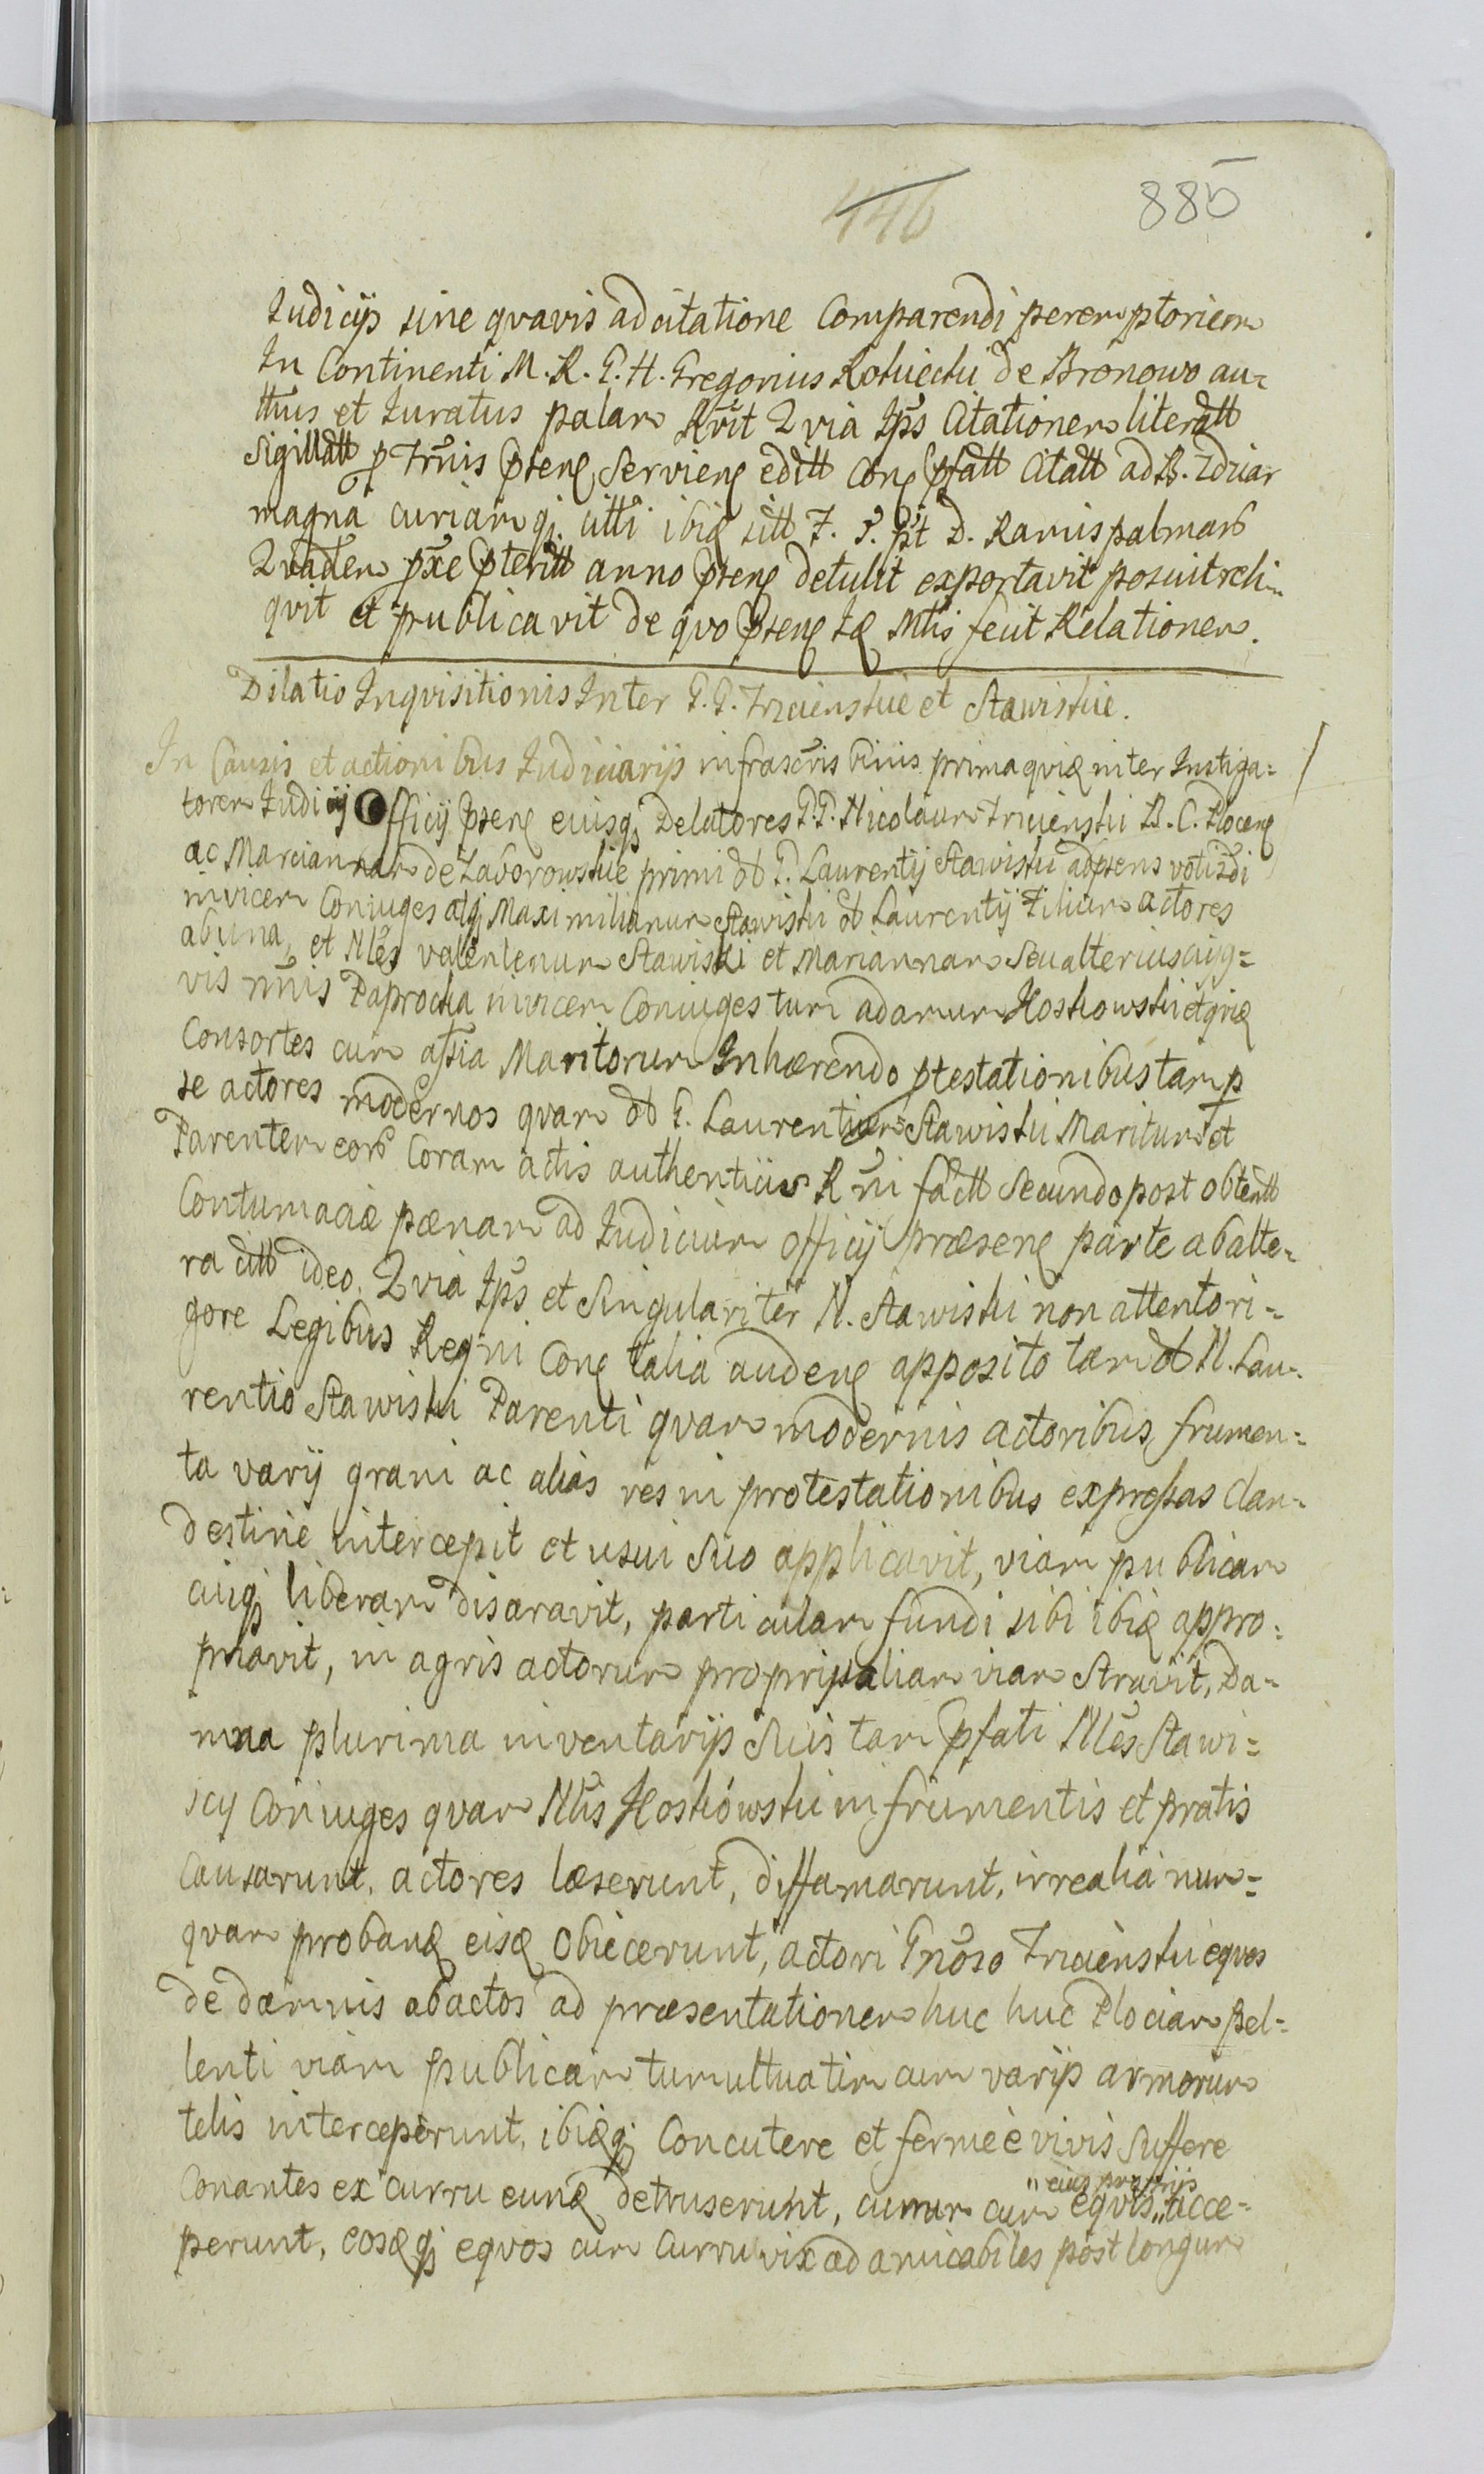 446 885
Judicijs sine qvavis adcitatione Comparendi peremptoriem
In Continenti M. R. G. H. Gregorius Kotuiecki de Bronowo au=
thus et Juratus palam Rrit Qvia Ips Citationem literatt
Sigillatt p Trnis pseng Servieng editt Cong pfatt Citatt ad B. Zdziar
magna curiam qj citti ibiq sitt F. S. pt D. Ramispalmaru
Qvadem pxe pteritt anno pseng detulit exportavit posuit reli=
qvit et publicavit de qvo pseng Jq Mtis fecit Relationem.
Dilatio Inqvisitionis Inter G. G. Trzcienskie et Stawiskie.
In Causis et actionibus Judiciarijs infrascris binis prima qviq inter Instiga=
torem Judicij Officij pseng eiusqj Delatores G.G. Nicolaum Trzcienski B. C. Ploceng
ac Mariannam de Zaborowskie primi olt G. Laurentij Stawiski adpsens voti 2di
invicem Coniuges atqj Maximilianum Stawiski olt Laurentij Filium actores
ab una, et Nles valentenum Stawiski et Mariannam Seu alterius cuig=
vis nnis Paprocka invicem Coniuges tum adamum Koskowski etqviq
Consortes cum assia Maritorum Inhærendo ptestationibus tam p
se actores modernos qvam olt G. Laurentium Stawiski Maritum et
Parentem eoru Coram actis authenticis Rni factt Secundo post obtentt
Contumaciæ pænam ad Judicium officij præseng parte ab alte=
ra citt ideo. Qvia Ips et Singulariter N. Stawiski non attento ri=
gore Legibus Regni Cong talia audeng apposito tam olt N. Lau=
rentio Stawiski Parenti qvam modernis actoribus frumen=
ta varij grani ac alias res in protestationibus expressas clan=
destine intercepit et usui suo applicavit, viam publicam
cuiqj liberam disaravit, particulam fundi sibi ibiq appro=
priavit, in agris actorum proprijs aliam viam Stravit, Da=
mna plurima inventarijs suis tam pfati Nles Stawi=
scy Coniuges qvam Nlis Koskowski in frumentis et pratis
Causarunt, actores læserunt, diffamarunt, irrealia nun=
qvam probanq eisq obiecerunt, actori Gnoso Trzcienski eqvos
de damnis abactos ad præsentationem huc huc Plociam pel=
lenti viam publicam tumultuatim cum varijs armorum
telis interceperunt, ibiqqj Concutere et ferme è vivis Suffere
Conantes ex curru eunq detruserunt, currum cum eqvis "acce=
"eius proprijs
perunt, eosqqj eqvos cum Curru vix ad amicabiles post longum